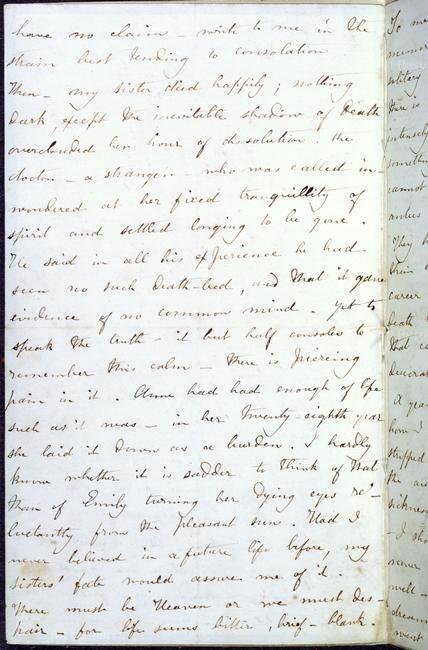 have no claim – write to me in the
strain best tending to consolation
Then – my sister died happily; nothing
dark, except the inevitable shadow of Death
overclouded her hour of dissolution. the
doctor – a stranger – who was called in –
wondered at her fixed tranquillity of
spirit and settled longing to be gone.
He said in all his experience he had
seen no such death-bed, and that it gave
evidence of no common mind – Yet to
speak the truth – it but half consoles to
remember this calm – there is piercing
pain in it. Anne had had enough of life
such as it was – in her twenty-eighth year
she laid it down as a burden. I hardly
know whether it is sadder to think of that
than of Emily turning her dying eyes re-
luctantly from the pleasant sun. Had I
never believed in a future life before, my
sisters' fate would assure me of it.
There must be Heaven or we must des-
pair – for life seems bitter, brief – blank.
To me
memor
solitary
there is
intensely
somethin
cannot
antees
They h
their
career
death
that c
A year
how I
stripped
the au
sickness
– I sho
never
well –
dream